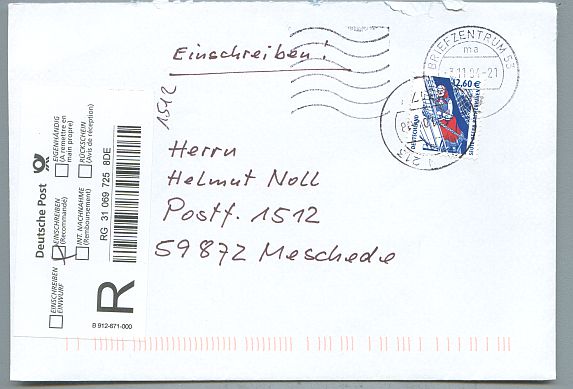 Einschreiben!
1512
Herrn
Helmut Noll
Postf. 1512
59872 Meschede
BRIEFZENTRUM 53
ma
-21
Deutsche Post
EIGENHÄNDIG
(A remettre en
main propre)
RÜCKSCHEIN
(Avis de réception)
EINSCHREIBEN
(Recommandé)
INT. NACHNAHME
(Remboursement)
EINSCHREIBEN
EINWURF
RG 31 069 725 8DE
R
B 912-671-000